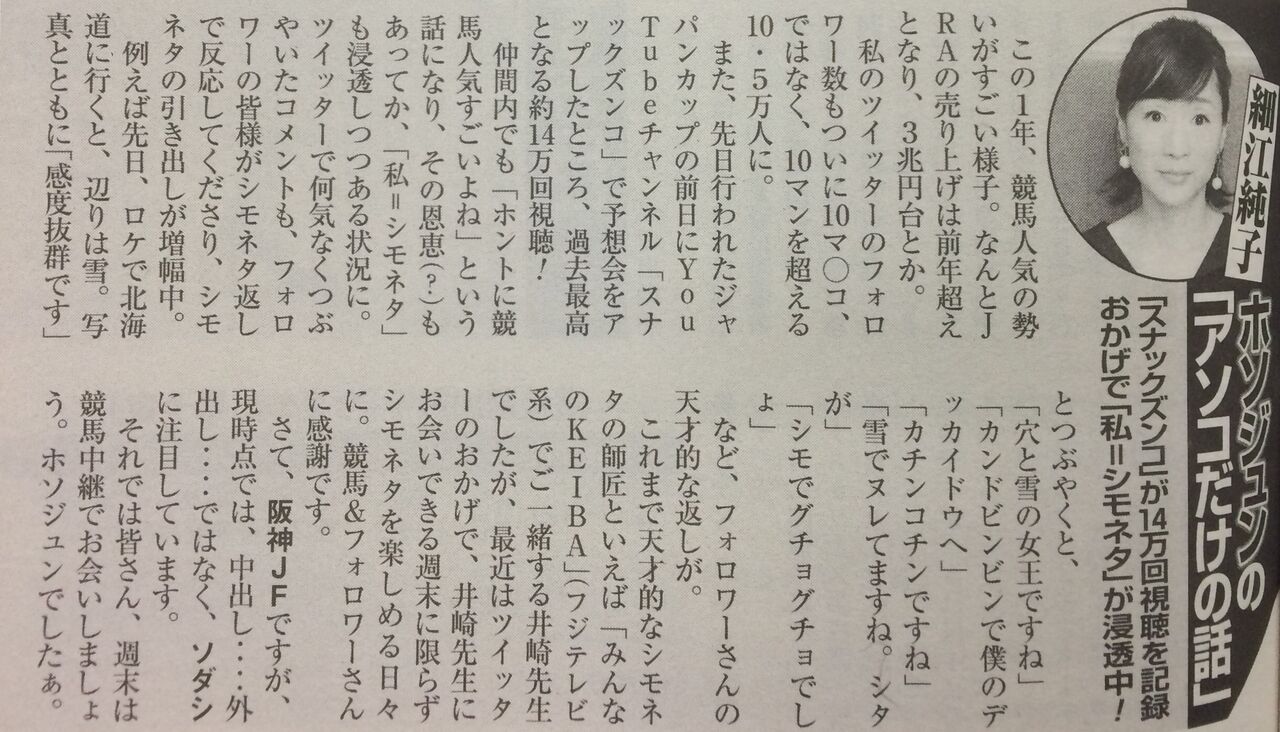 細江純子
ホソジュンの
「アソコだけの話」
「スナックズンコ」が14万回視聴を記録
おかげで「私＝シモネタ」が浸透中！
この1年、競馬人気の勢
いがすごい様子。なんとJ
RAの売り上げは前年超え
となり、3兆円台とか。
私のツイッターのフォロ
ワー数もついに10マ〇コ、
ではなく、10マンを超える
10・5万人に。
また、先日行われたジャ
パンカップの前日にYou
Tubeチャンネル「スナ
ックズンコ」で予想会をア
ップしたところ、過去最高
となる約14万回視聴！
仲間内でも「ホントに競
馬人気すごいよね」という
話になり、その恩恵(？)も
あってか、「私＝シモネタ」
も浸透しつつある状況に。
ツイッターで何気なくつぶ
やいたコメントも、フォロ
ワーの皆様がシモネタ返し
で反応してくださり、シモ
ネタの引き出しが増幅中。
例えば先日、ロケで北海
道に行くと、辺りは雪。写
真とともに「感度抜群です」
とつぶやくと、
「穴と雪の女王ですね」
「カンドビンビンで僕のデ
ッカイドウへ」
「カチンコチンですね」
「雪でヌレてますね。シタ
が」
「シモでグチョグチョでし
ょ」
など、フォロワーさんの
天才的な返しが。
これまで天才的なシモネ
タの師匠といえば「みんな
のKEIBA」(フジテレビ
系)でご一緒する井崎先生
でしたが、最近はツイッタ
ーのおかげで、井崎先生に
お会いできる週末に限らず
シモネタを楽しめる日々
に。競馬＆フォロワーさん
に感謝です。
さて、阪神JFですが、
現時点では、中出し‥‥外
出し‥‥ではなく、ソダシ
に注目しています。
それでは皆さん、週末は
競馬中継でお会いしましょ
う。ホソジュンでしたぁ。